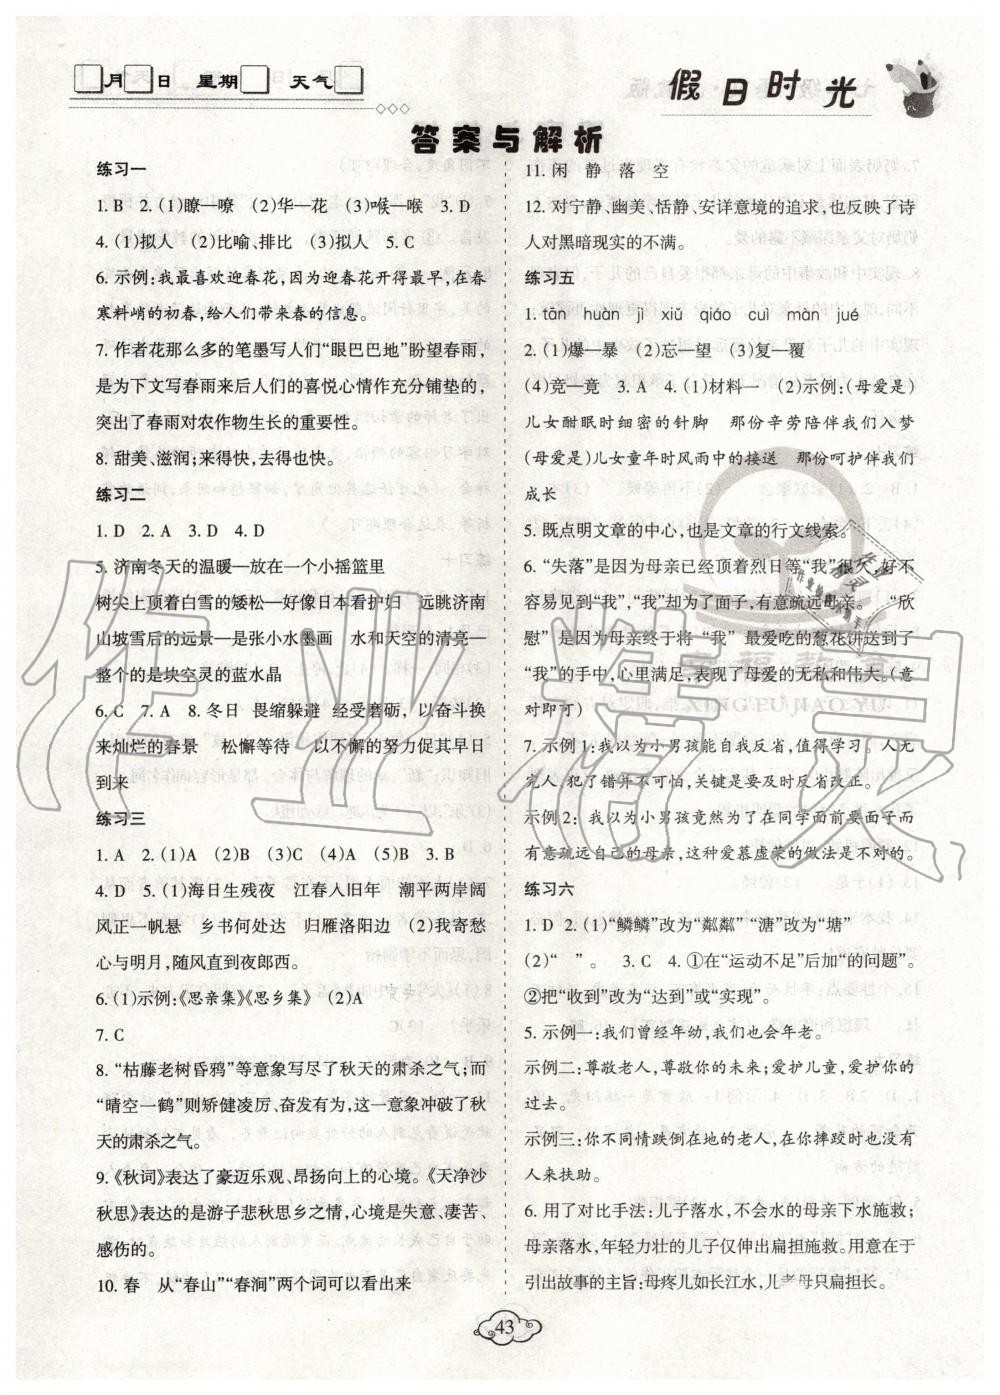 月 日 星期 天气
假日时光
答案与解析
练习一
1. B 2. (1)瞭—嘹 (2)华—花 (3)喉—喉 3. D
4. (1)拟人 (2)比喻、排比 (3)拟人 5. C
6. 示例:我最喜欢迎春花,因为迎春花开得最早,在春
寒料峭的初春,给人们带来春的信息。
7. 作者花那么多的笔墨写人们“眼巴巴地”盼望春雨,
是为下文写春雨来后人们的喜悦心情作充分铺垫的,
突出了春雨对农作物生长的重要性。
8. 甜美、滋润;来得快,去得也快。
练习二
1. D 2. A 3. D 4. D
5. 济南冬天的温暖—放在一个小摇篮里
树尖上顶着白雪的矮松—好像日本看护妇 远眺济南
山坡雪后的远景—是张小水墨画 水和天空的清亮—
整个的是块空灵的蓝水晶
6. C 7. A 8. 冬日 畏缩躲避 经受磨砺,以奋斗换
来灿烂的春景 松懈等待 以不懈的努力促其早日
到来
练习三
1. A 2. (1)A (2)B (3)C (4)A (5)B 3. B
4. D 5. (1)海日生残夜 江春入旧年 潮平两岸阔
风正一帆悬 乡书何处达 归雁洛阳边 (2)我寄愁
心与明月,随风直到夜郎西。
6. (1)示例:《思亲集》《思乡集》 (2)A
7. C
8. “枯藤老树昏鸦”等意象写尽了秋天的肃杀之气;而
“晴空一鹤”则矫健凌厉、奋发有为,这一意象冲破了秋
天的肃杀之气。
9. 《秋词》表达了豪迈乐观、昂扬向上的心境。《天净沙
秋思》表达的是游子悲秋思乡之情,心境是失意、凄苦、
感伤的。
10. 春 从“春山”“春涧”两个词可以看出来
11. 闲 静 落 空
12. 对宁静、幽美、恬静、安详意境的追求,也反映了诗
人对黑暗现实的不满。
练习五
1. tān huàn jì xiǔ qiáo cuì màn jué
2. (1)爆—暴 (2)忘—望 (3)复—覆
(4)竞—竟 3. A 4. (1)材料一 (2)示例:(母爱是)
儿女酣眠时细密的针脚 那份辛劳陪伴我们入梦
(母爱是)儿女童年时风雨中的接送 那份呵护伴我们
成长
5. 既点明文章的中心,也是文章的行文线索。
6. “失落”是因为母亲已经顶着烈日等“我”很久,好不
容易见到“我”,“我”却为了面子,有意疏远母亲。 “欣
慰”是因为母亲终于将“我”最爱吃的葱花饼送到了
“我”的手中,心里满足,表现了母爱的无私和伟大。(意
对即可)
7. 示例1:我以为小男孩能自我反省,值得学习。人无
完人,犯了错并不可怕,关键是要及时反省改正。
示例2:我以为小男孩竟然为了在同学面前要面子而
有意疏远自己的母亲,这种爱慕虚荣的做法是不对的。
练习六
1. D 2. (1)“鳞鳞”改为“粼粼”“溏”改为“塘”
(2)“ ” 。 3. C 4. ①在“运动不足”后加“的问题”。
②把“收到”改为“达到”或“实现”。
5. 示例一:我们曾经年幼,我们也会年老。
示例二:尊敬老人,尊敬你的未来;爱护儿童,爱护你的
过去。
示例三:你不同情跌倒在地的老人,在你摔跤时也没有
人来扶助。
6. 用了对比手法:儿子落水,不会水的母亲下水施救;
母亲落水,年轻力壮的儿子仅伸出扁担施救。用意在于
引出故事的主旨:母疼儿如长江水,儿孝母只扁担长。
43
作业精灵